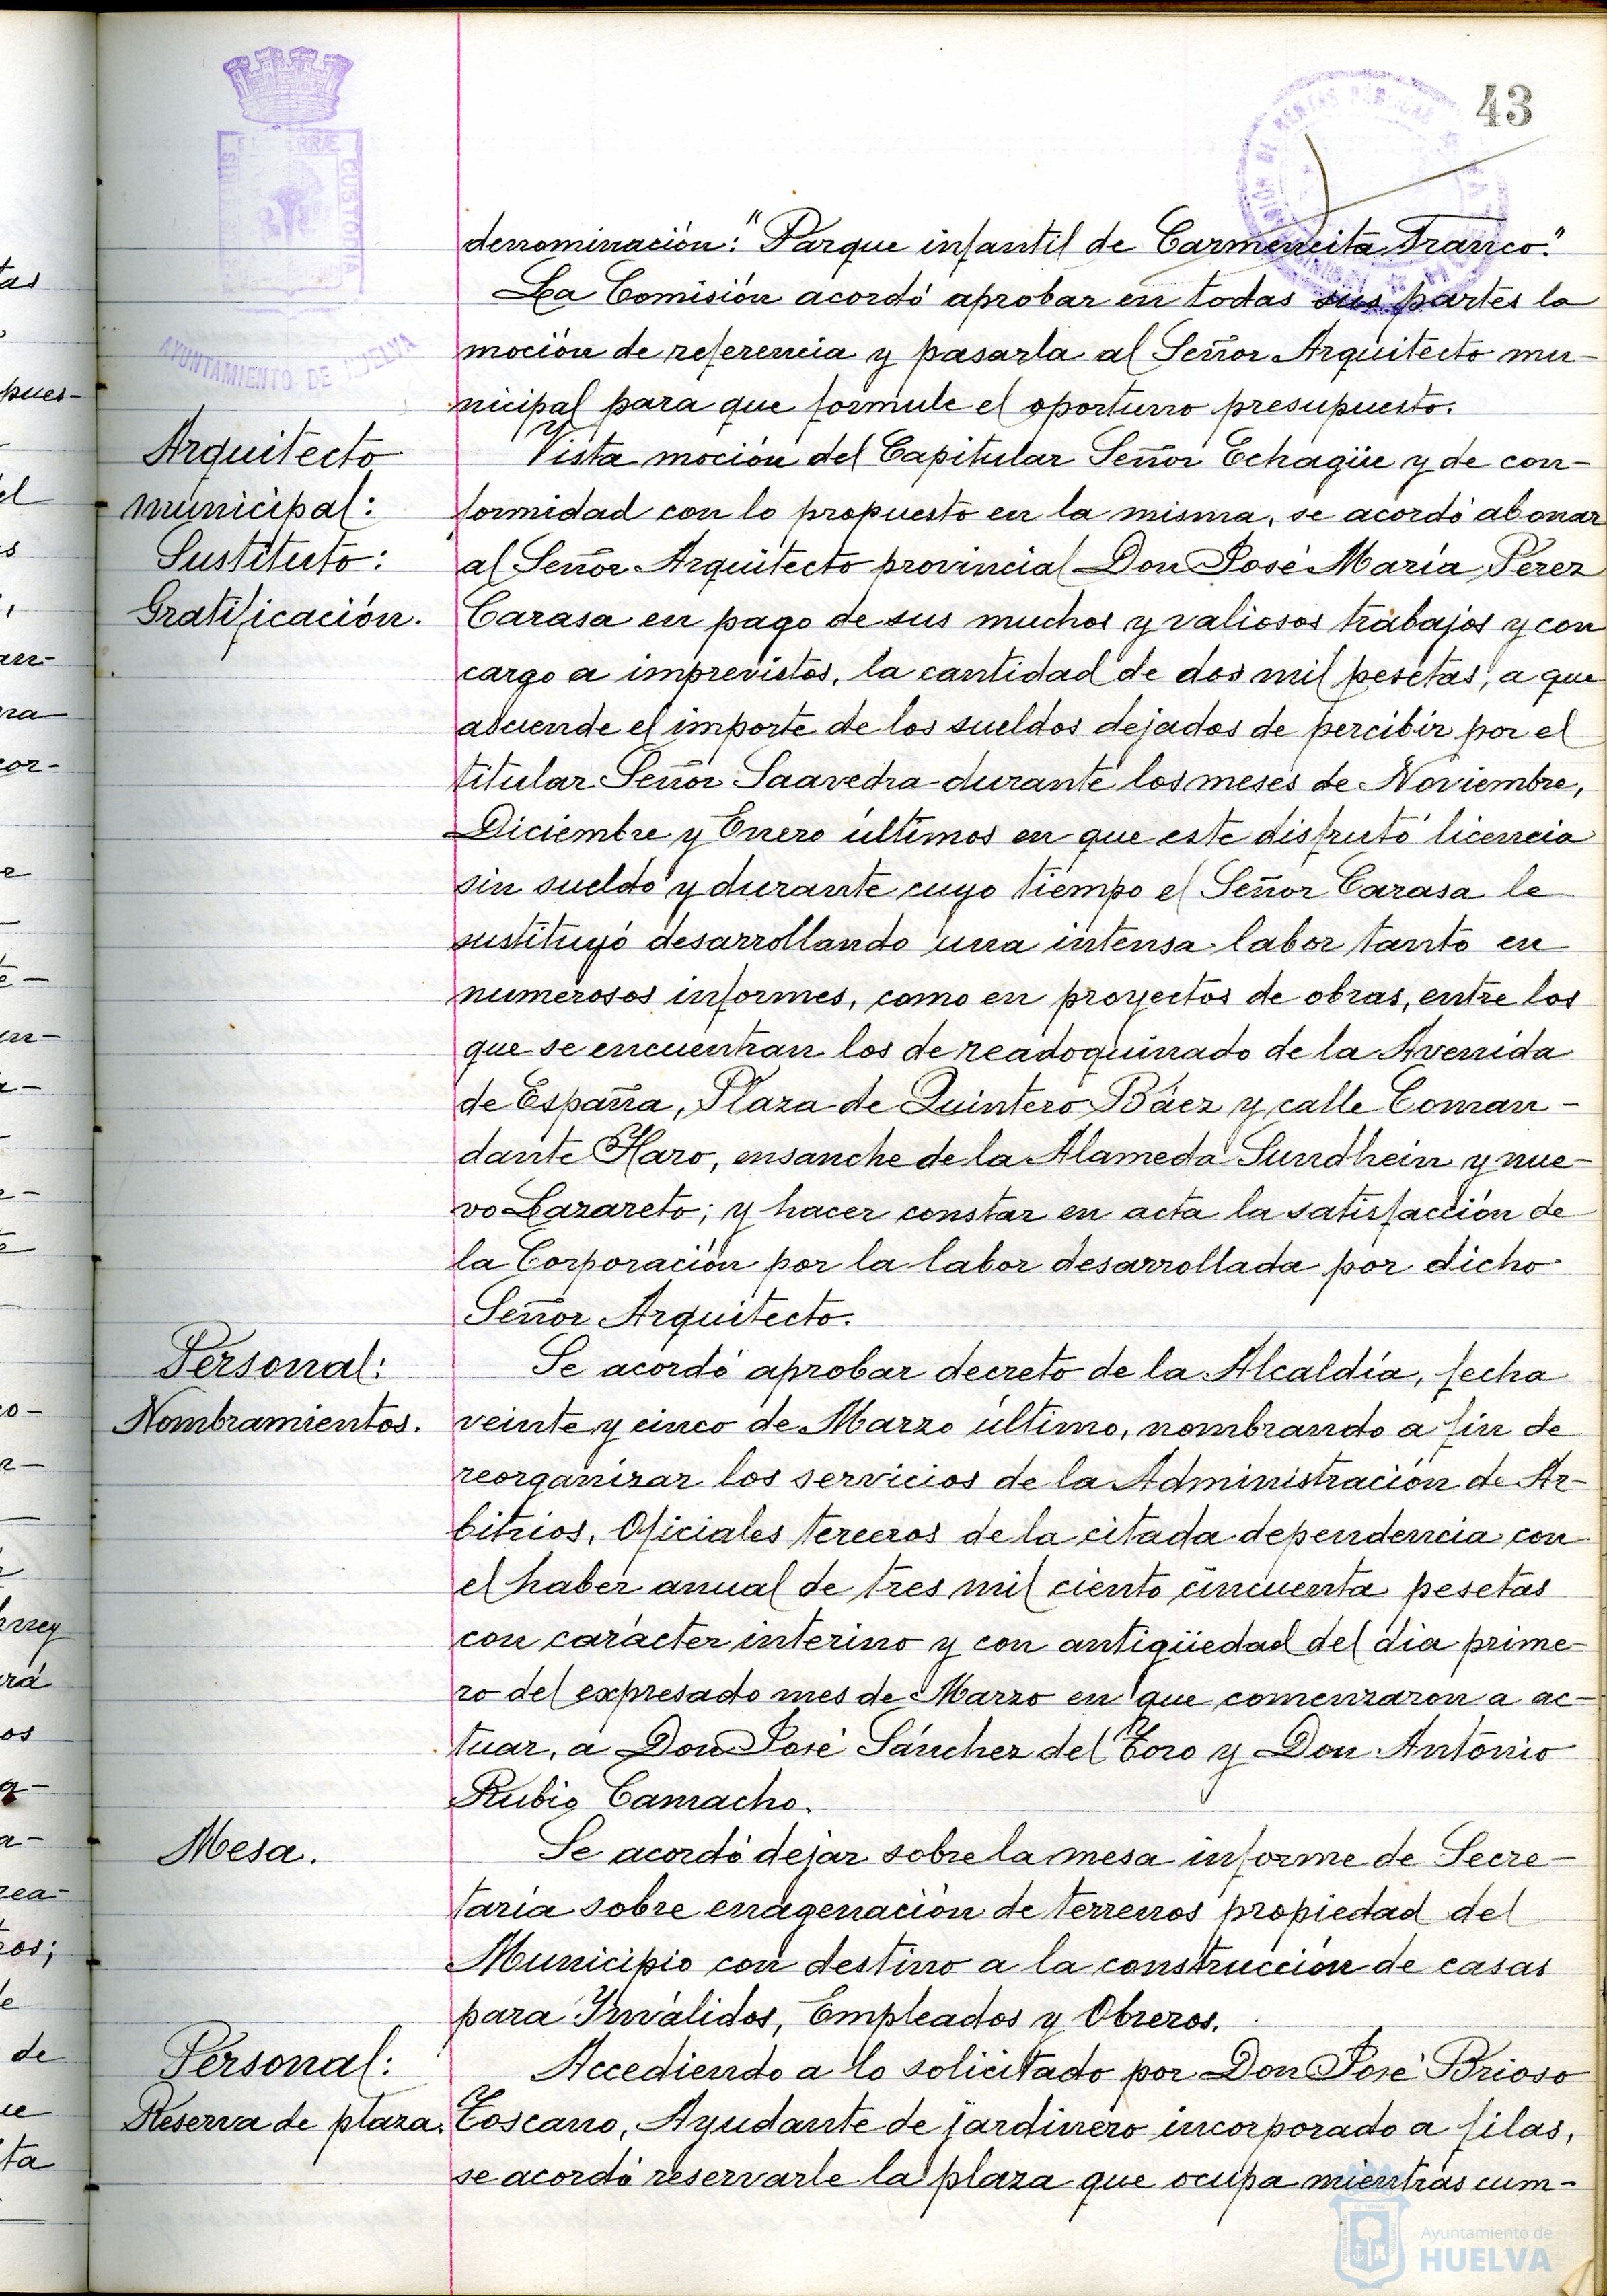 43
denominación: "Parque infantil de Carmencita Franco."
La Comisión acordó aprobar en todas sus partes la
moción de referencia y pasarla al Señor Arquitecto mu-
nicipal para que formule el oportuno presupuesto.
Arquitecto
municipal:
Sustituto:
Gratificación.
Vista moción del Capitular Señor Echagüe y de con-
formidad con lo propuesto en la misma, se acordó abonar
al Señor Arquitecto provincial Don José María Pérez
Carasa en pago de sus muchos y valiosos trabajos y con
cargo a imprevistos, la cantidad de dos mil pesetas, a que
asciende el importe de los sueldos dejados de percibir por el
titular Señor Saavedra durante los meses de Noviembre,
Diciembre y Enero últimos en que este disfrutó licencia
sin sueldo y durante cuyo tiempo el Señor Carasa le
sustituyó desarrollando una intensa labor tanto en
numerosos informes, como en proyectos de obras, entre los
que se encuentran los de readoquinado de la Avenida
de España, Plaza de Quintero Báez y calle Coman-
dante Haro, ensanche de la Alameda Sundhein y nue-
vo Lazareto; y hacer constar en acta la satisfacción de
la Corporación por la labor desarrollada por dicho
Señor Arquitecto.
Personal:
Nombramientos.
Se acordó aprobar decreto de la Alcaldía, fecha
veinte y cinco de Marzo último, nombrando a fin de
reorganizar los servicios de la Administración de Ar-
bitrios, Oficiales terceros de la citada dependencia con
el haber anual de tres mil ciento cincuenta pesetas
con carácter interino y con antigüedad del día prime-
ro del expresado mes de Marzo en que comenzaron a ac-
tuar, a Don José Sánchez del Toro y Don Antonio
Rubio Camacho.
Mesa.
Se acordó dejar sobre la mesa informe de Secre-
taría sobre enagenación de terrenos propiedad del
Municipio con destino a la construcción de casas
para Inválidos, Empleados y Obreros.
Personal:
Reserva de plaza.
Accediendo a lo solicitado por Don José Brioso
Toscano, Ayudante de jardinero incorporado a filas,
se acordó reservarle la plaza que ocupa mientras cum-
AYUNTAMIENTO DE HUELVA
Ayuntamiento de
HUELVA